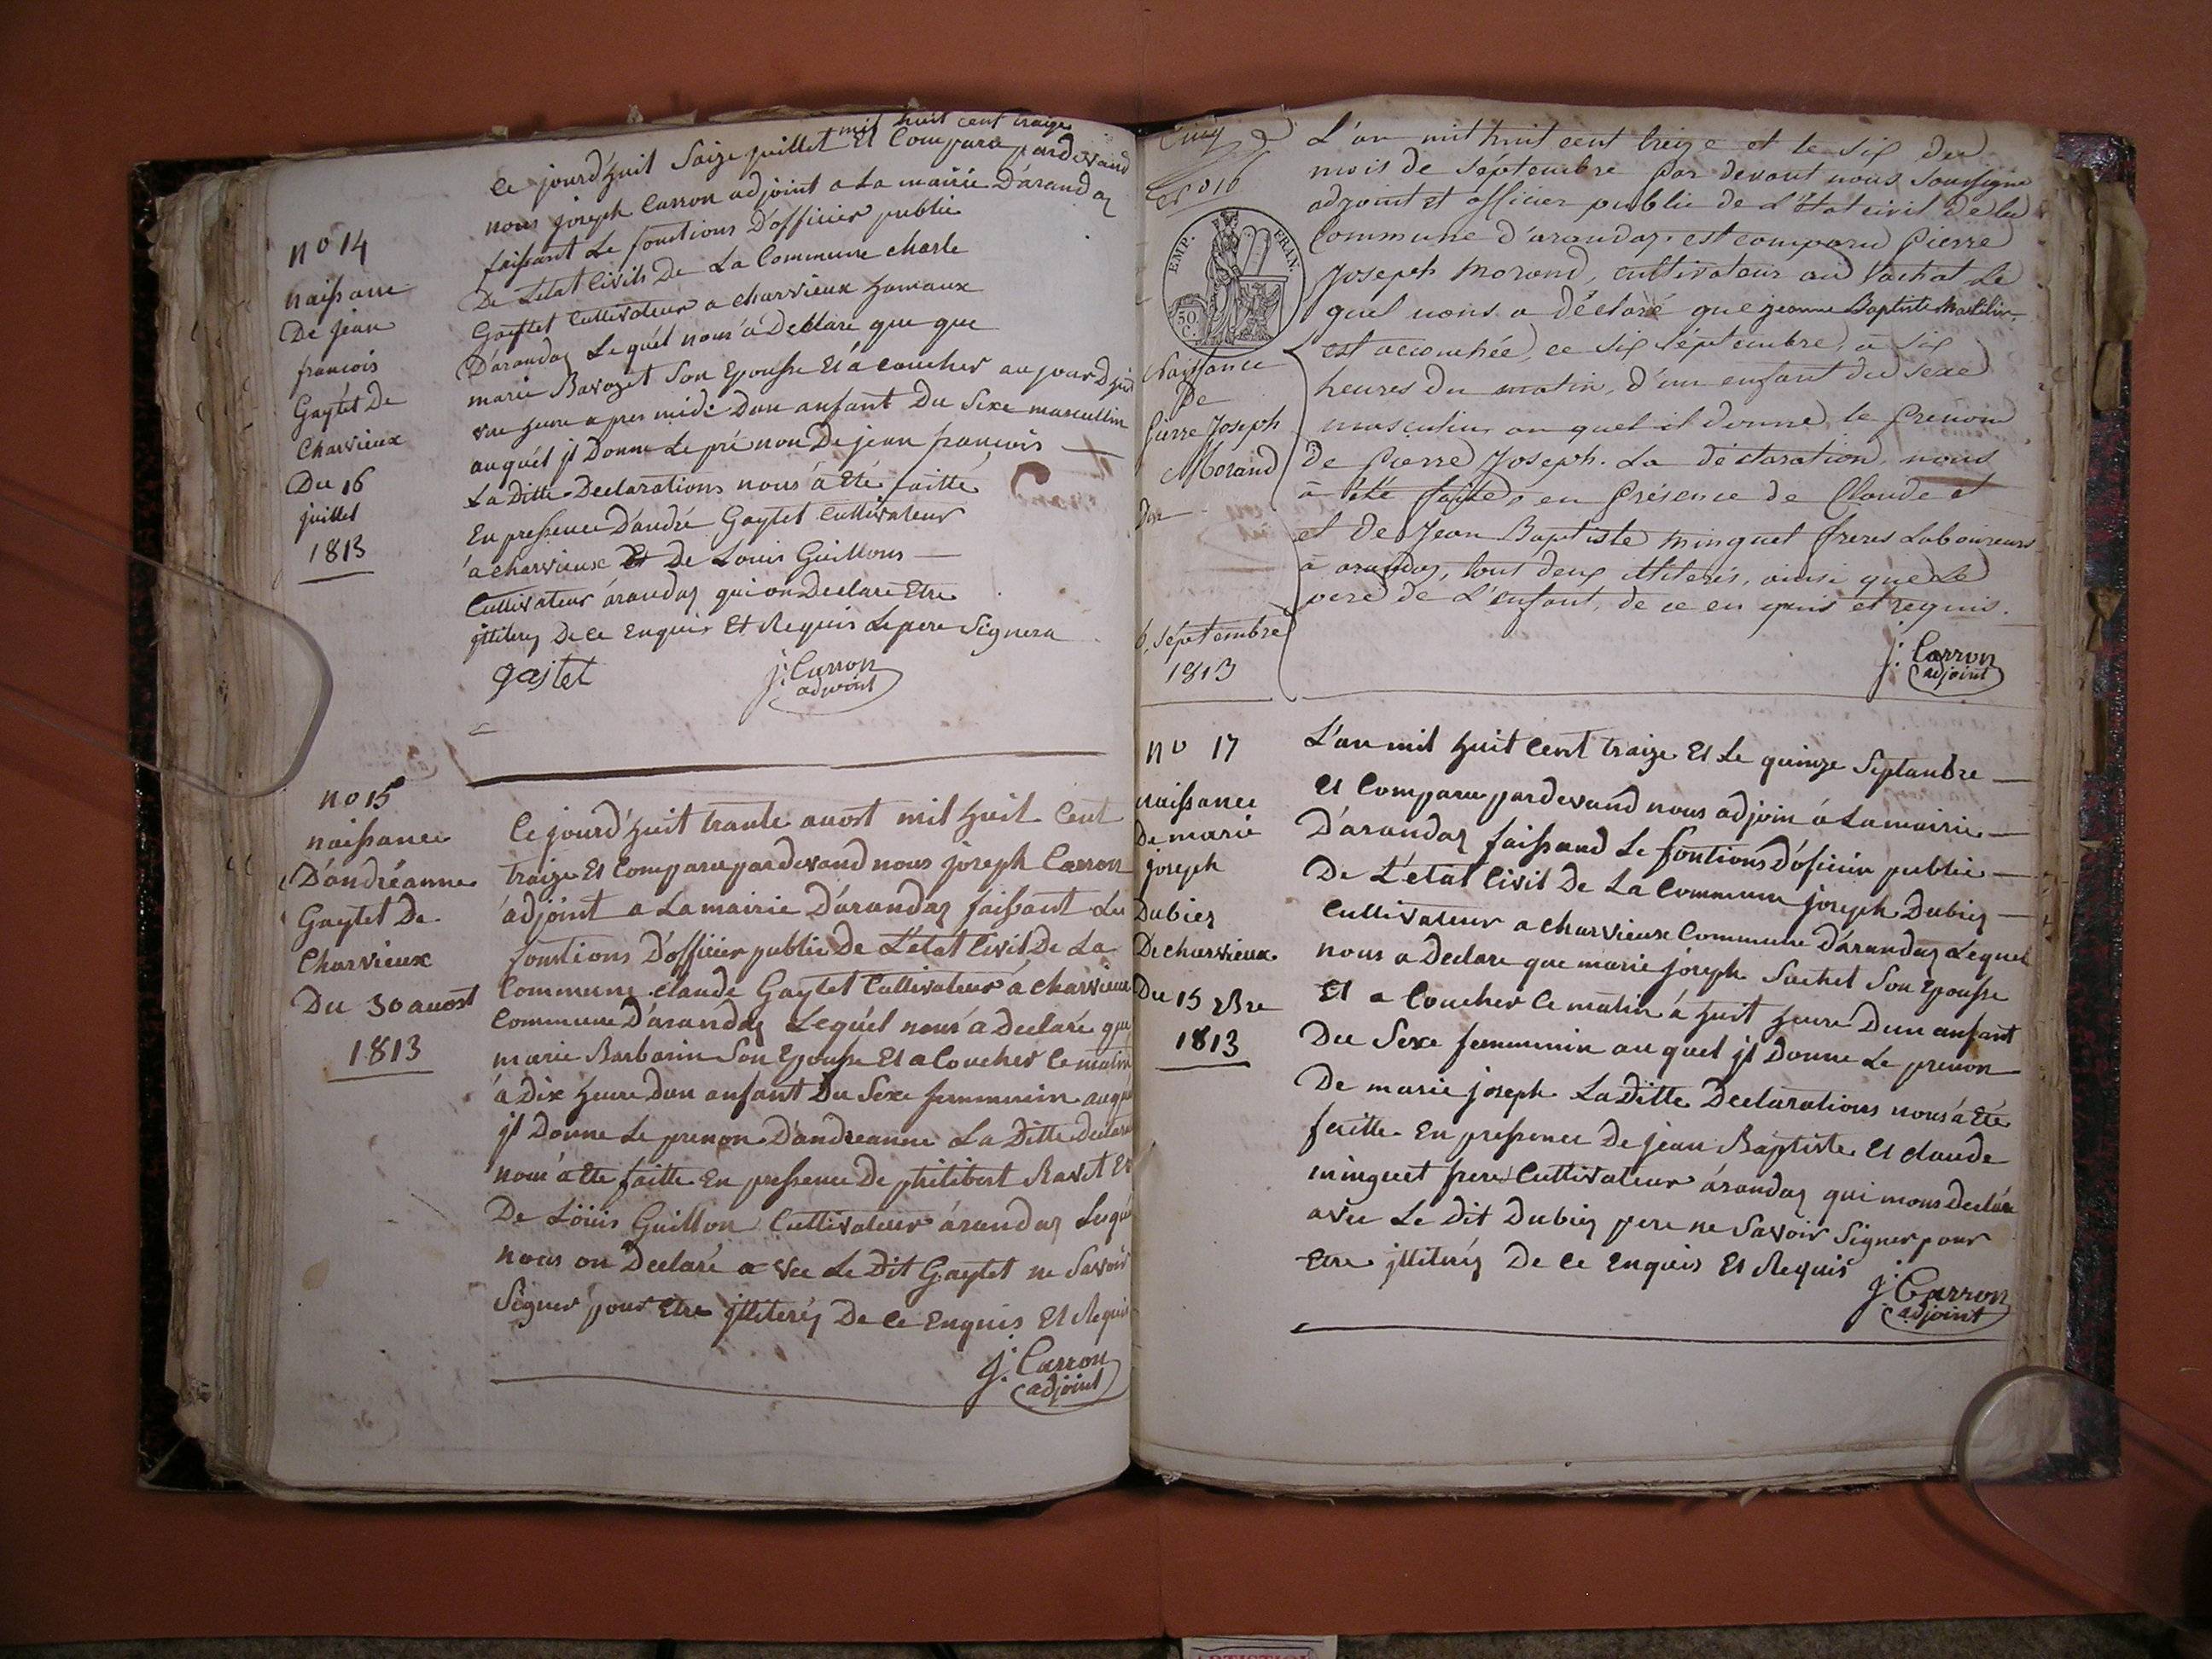 mil huit cent traize
Ce jourd'huit Saize juillet Et Comparu pardevand
nous joseph Carron adjoint a La mairie D'arandas
faissant Le fonctions D'officier public
De L'etat Civils De La Commune charle
Gaytet Cultivateur a charvieux hamaux
D'arandas Lequél nous a Déclare que que
marie Ravozet Son Epousse Et a coucher aujourd'huit
une heure apres midi Dun anfant Du Sexe masculin
auquél jl Donne Le pré non De jean francois
La Ditte Declarations nous a Eté faitte
En pressence D'andré Gaytet Cultivateur
a charvieux Et De Louis Guillons
Cultivateur árandas qui on Declare Etre
jlliterés De ce Enquis Et Requis Le pere Signera
gajtet
j. Carron
adjoint
no 14
naissance
De jean
francois
Gaytét De
Charvieux
Du 16
juillet
1813
no 15
naissance
D'andréanne
Gaytet De
Charvieux
Du 30 auost
1813
Ce jourd'huit trante auost mil huit Cent
traize Et Comparu pardevand nous joseph Carron
adjoint a La mairie D'arandas faissant Les
fonctions D'officier public De L'etat Civil De La
Commune claude Gaytet Cultivateur á charvieux
Commune D'arandas Lequél nous a Declaré que
marie Barbarin Son Epousse Et a Coucher Ce matin
á Dix heure Dun anfant Du Sexe femminin auqu
jl Donne Le prenon D'andreanne La Ditte Declara
nous a Ete faitte En pressence De philibert Ravet Et
De Löüis Guillon Cultivateur árandas Lequ
nous on Declaré a vec Le Dit Gaytet ne Savoir
Signer pour Etre jlliterés De ce Enquis Et Requis
j. Carron
adjoint
Cinq
No 16
EMP. FRAN.
50 C.
Naissance
De
Pierre Joseph
Morand
Du
6 Séptembre
1813
L'an mil huit cent treize et le six du
mois de Séptembre par devant nous Soussigné
adjoint et officier public de L'état civil de la
Commune d'arandas est comparu Pierre
Joseph Morand, cultivateur au Vachat Le
quel nous a déclaré que jeanne Baptiste
est accouchée, ce six séptembre, à six
heures du matin, d'un enfant du Sexe
masculin au quel il donne le prenom
de Pierre Joseph. La déclaration nous
à été faite, en présence de Claude et
et de Jean Baptiste Minguet freres Laboureurs
à arandas, tout deux illiterés, ainsi que Le
pere de L'enfant, de ce en quis et requis.
j. Carron
adjoint
no 17
naissance
De marie
joseph
Dubiez
De charvieux
Du 15 7bre
1813
L'an mil huit Cent traize Et Le quinze Septanbre
Et Comparu pardevand nous adjoin á La mairie
D'arandas faissand Le fontions D'oficier public
De L'état Civil De La Commune joseph Dubiez
Cultivateur a charvieux Commune D'arandas Lequel
nous a Declare que marie joseph Sachet Son Epousse
Et a Coucher Ce matin á huit heure Dun anfant
Du Sexe femminin au quel jl Donne Le prenon
De marie joseph La Ditte Declarations nous á Eté
faitte En pressence De jean Baptiste Et claude
minguet frere Cultivateur árandas qui nous Declare
avec Le Dit Dubiez pere ne Savoir Signer pour
Etre jlliterés De Ce Enquis Et Requis
j. Carron
adjoint